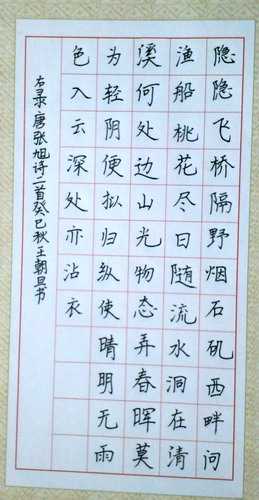 隐隐飞桥隔野烟石矶西畔问
渔船桃花尽日随流水洞在清
溪何处边山光物态弄春晖莫
为轻阴便拟归纵使晴明无雨
色入云深处亦沾衣
右录唐张旭诗二首癸巳秋王朝旦书